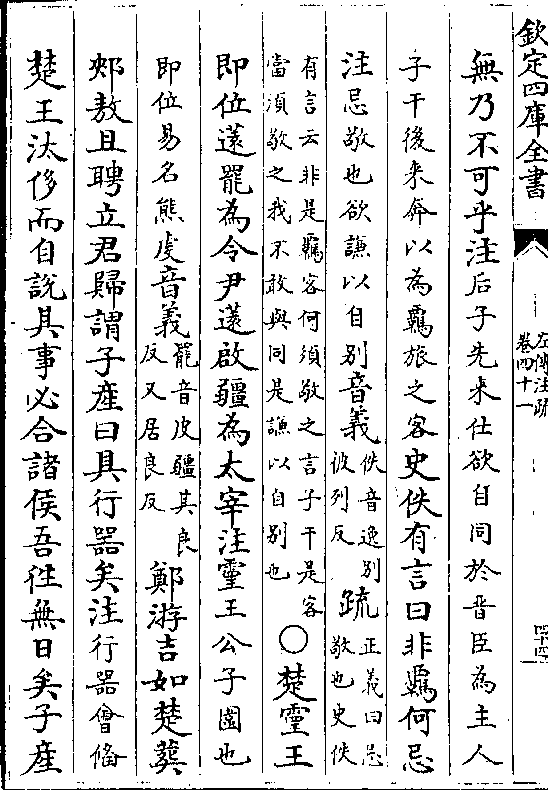 欽定四庫全書
左傳注疏
卷四十一
無乃不可乎注后子先来仕欲自同於晉臣為主人
子干後来奔以為羈旅之客史佚有言曰非羈何忌
注忌敬也欲謙以自别音義佚音逸别彼列反疏正義曰忌敬也史佚
有言云非是羈客何須敬之言子干是客當須敬之我不敢與同是謙以自别也○楚靈王
即位薳罷為令尹薳啟疆為太宰注靈王公子圍也
即位易名熊虔音義罷音皮疆其良反又居良反鄭游吉如楚葬
郟敖且聘立君歸謂子産曰具行器矣注行器會俻
楚王汰侈而自說其事必合諸侯吾往無日矣子産